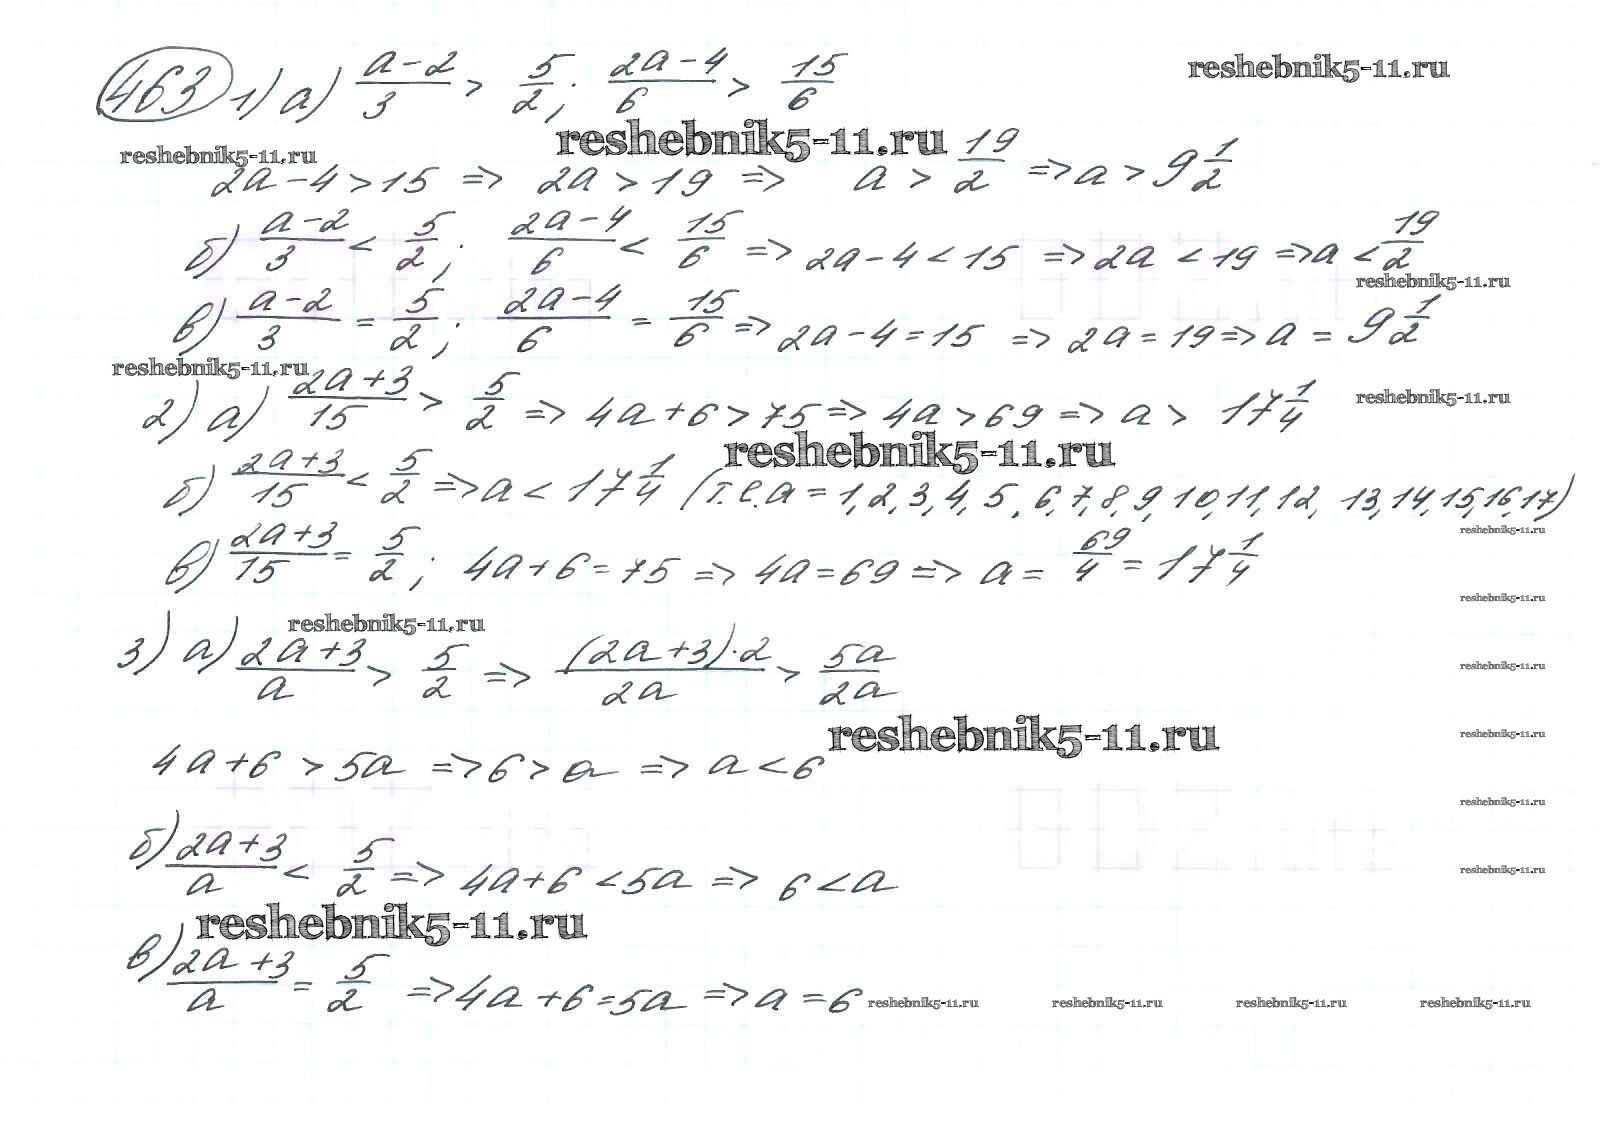 463 1) а) (a-2)/3 > 5/2; (2a-4)/6 > 15/6
reshebnik5-11.ru
reshebnik5-11.ru
reshebnik5-11.ru
2a-4>15 => 2a>19 => a > 19/2 => a > 9 1/2
б) (a-2)/3 < 5/2; (2a-4)/6 < 15/6 => 2a-4<15 => 2a<19 => a < 19/2
reshebnik5-11.ru
в) (a-2)/3 = 5/2; (2a-4)/6 = 15/6 => 2a-4=15 => 2a=19 => a = 9 1/2
reshebnik5-11.ru
2) а) (2a+3)/15 > 5/2 => 4a+6>75 => 4a>69 => a > 17 1/4
reshebnik5-11.ru
reshebnik5-11.ru
б) (2a+3)/15 < 5/2 => a < 17 1/4 (т.е. a = 1, 2, 3, 4, 5, 6, 7, 8, 9, 10, 11, 12, 13, 14, 15, 16, 17)
reshebnik5-11.ru
в) (2a+3)/15 = 5/2; 4a+6=75 => 4a=69 => a = 69/4 = 17 1/4
reshebnik5-11.ru
reshebnik5-11.ru
3) а) (2a+3)/a > 5/2 => ((2a+3)·2)/2a > 5a/2a
reshebnik5-11.ru
reshebnik5-11.ru
reshebnik5-11.ru
4a+6 > 5a => 6 > a => a < 6
reshebnik5-11.ru
б) (2a+3)/a < 5/2 => 4a+6 < 5a => 6 < a
reshebnik5-11.ru
reshebnik5-11.ru
в) (2a+3)/a = 5/2 => 4a+6=5a => a=6
reshebnik5-11.ru reshebnik5-11.ru reshebnik5-11.ru reshebnik5-11.ru